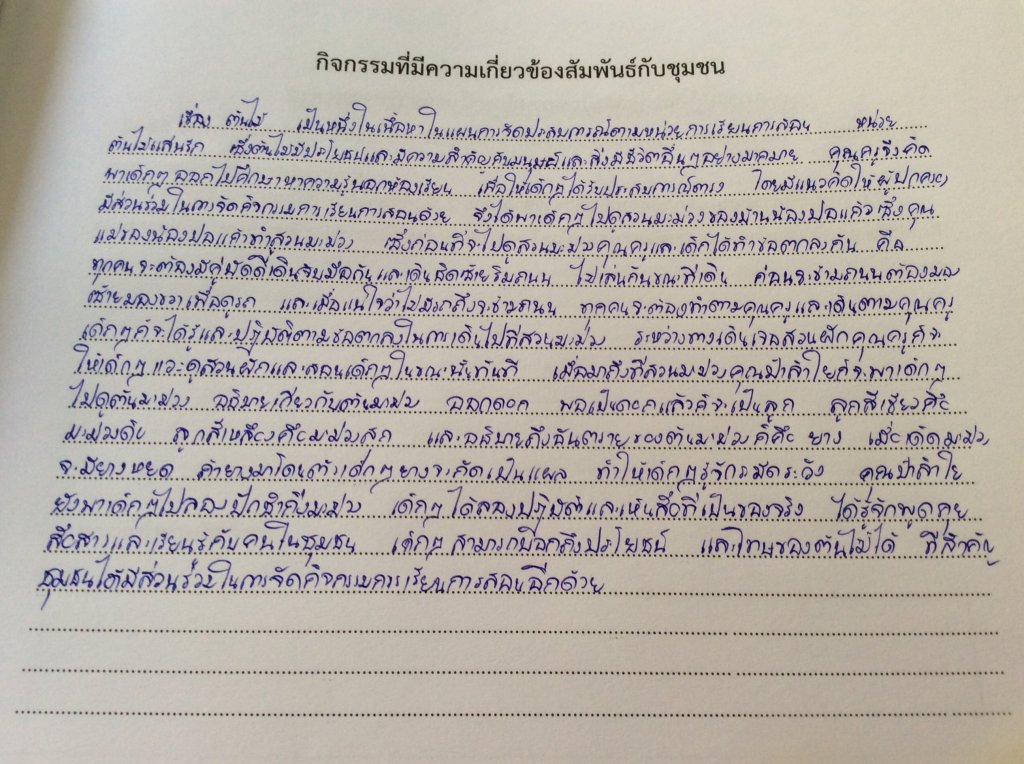 กิจกรรมที่มีความเกี่ยวข้องสัมพันธ์กับชุมชน
เรื่อง ต้นไม้ เป็นหนึ่งในเนื้อหาในแผนการจัดประสบการณ์ตามหน่วยการเรียนการสอน หน่วย
ต้นไม้แสนรัก ซึ่งต้นไม้มีประโยชน์และมีความสำคัญกับมนุษย์และสิ่งมีชีวิตอื่นๆอย่างมากมาย คุณครูจึงคิด
พาเด็กๆ ออกไปศึกษาหาความรู้นอกห้องเรียน เพื่อให้เด็กๆได้รับประสบการณ์ตรง โดยมีแนวคิดให้ผู้ปกครอง
มีส่วนร่วมในการจัดกิจกรรมการเรียนการสอนด้วย จึงได้พาเด็กๆไปดูสวนมะม่วงของบ้านน้องปอแก้วซึ่งคุณ
แม่ของน้องปอแก้วทำสวนมะม่วง ซึ่งก่อนที่จะไปดูสวนมะม่วงคุณครูและเด็กได้ทำข้อตกลงกัน คือ
ทุกคนจะต้องมีคู่บัดดี้เดินจับมือกันและเดินชิดซ้ายริมถนน ไม่เล่นกันขณะที่เดิน ก่อนจะข้ามถนนต้องมอง
ซ้ายมองขวาเพื่อดูรถ และเมื่อแน่ใจว่าไม่มีรถถึงจะข้ามถนน ทุกคนจะต้องทำตามคุณครูและเดินตามคุณครู
เด็กๆก็จะได้รู้และปฏิบัติตามข้อตกลงในการเดินไปที่สวนมะม่วง ระหว่างทางเดินเจอสวนผักคุณครูก็จะ
ให้เด็กๆแวะดูสวนผักและสอนเด็กๆในขณะนั้นทันที เมื่อมาถึงที่สวนมะม่วงคุณป้าลำใยก็จะพาเด็กๆ
ไปดูต้นมะม่วง อธิบายเกี่ยวกับต้นมะม่วง ออกดอก พอเป็นดอกแล้วก็จะเป็นลูก ลูกสีเขียวคือ
มะม่วงดิบ ลูกสีเหลืองคือมะม่วงสุก และอธิบายถึงอันตรายของต้นมะม่วงก็คือ ยาง เมื่อเด็ดมะม่วง
จะมียางหยด ถ้ายางมาโดนตัวเด็กๆยางจะกัดเป็นแผล ทำให้เด็กๆรู้จักระมัดระวัง คุณป้าลำใย
ยังพาเด็กๆไปลองปักชำกิ่งมะม่วง เด็กๆได้ลองปฏิบัติและเห็นสิ่งที่เป็นของจริง ได้รู้จักพูดคุย
สื่อสารและเรียนรู้กับคนในชุมชน เด็กๆสามารถบอกถึงประโยชน์ และโทษของต้นไม้ได้ ที่สำคัญ
ชุมชนได้มีส่วนร่วมในการจัดกิจกรรมการเรียนการสอนอีกด้วย